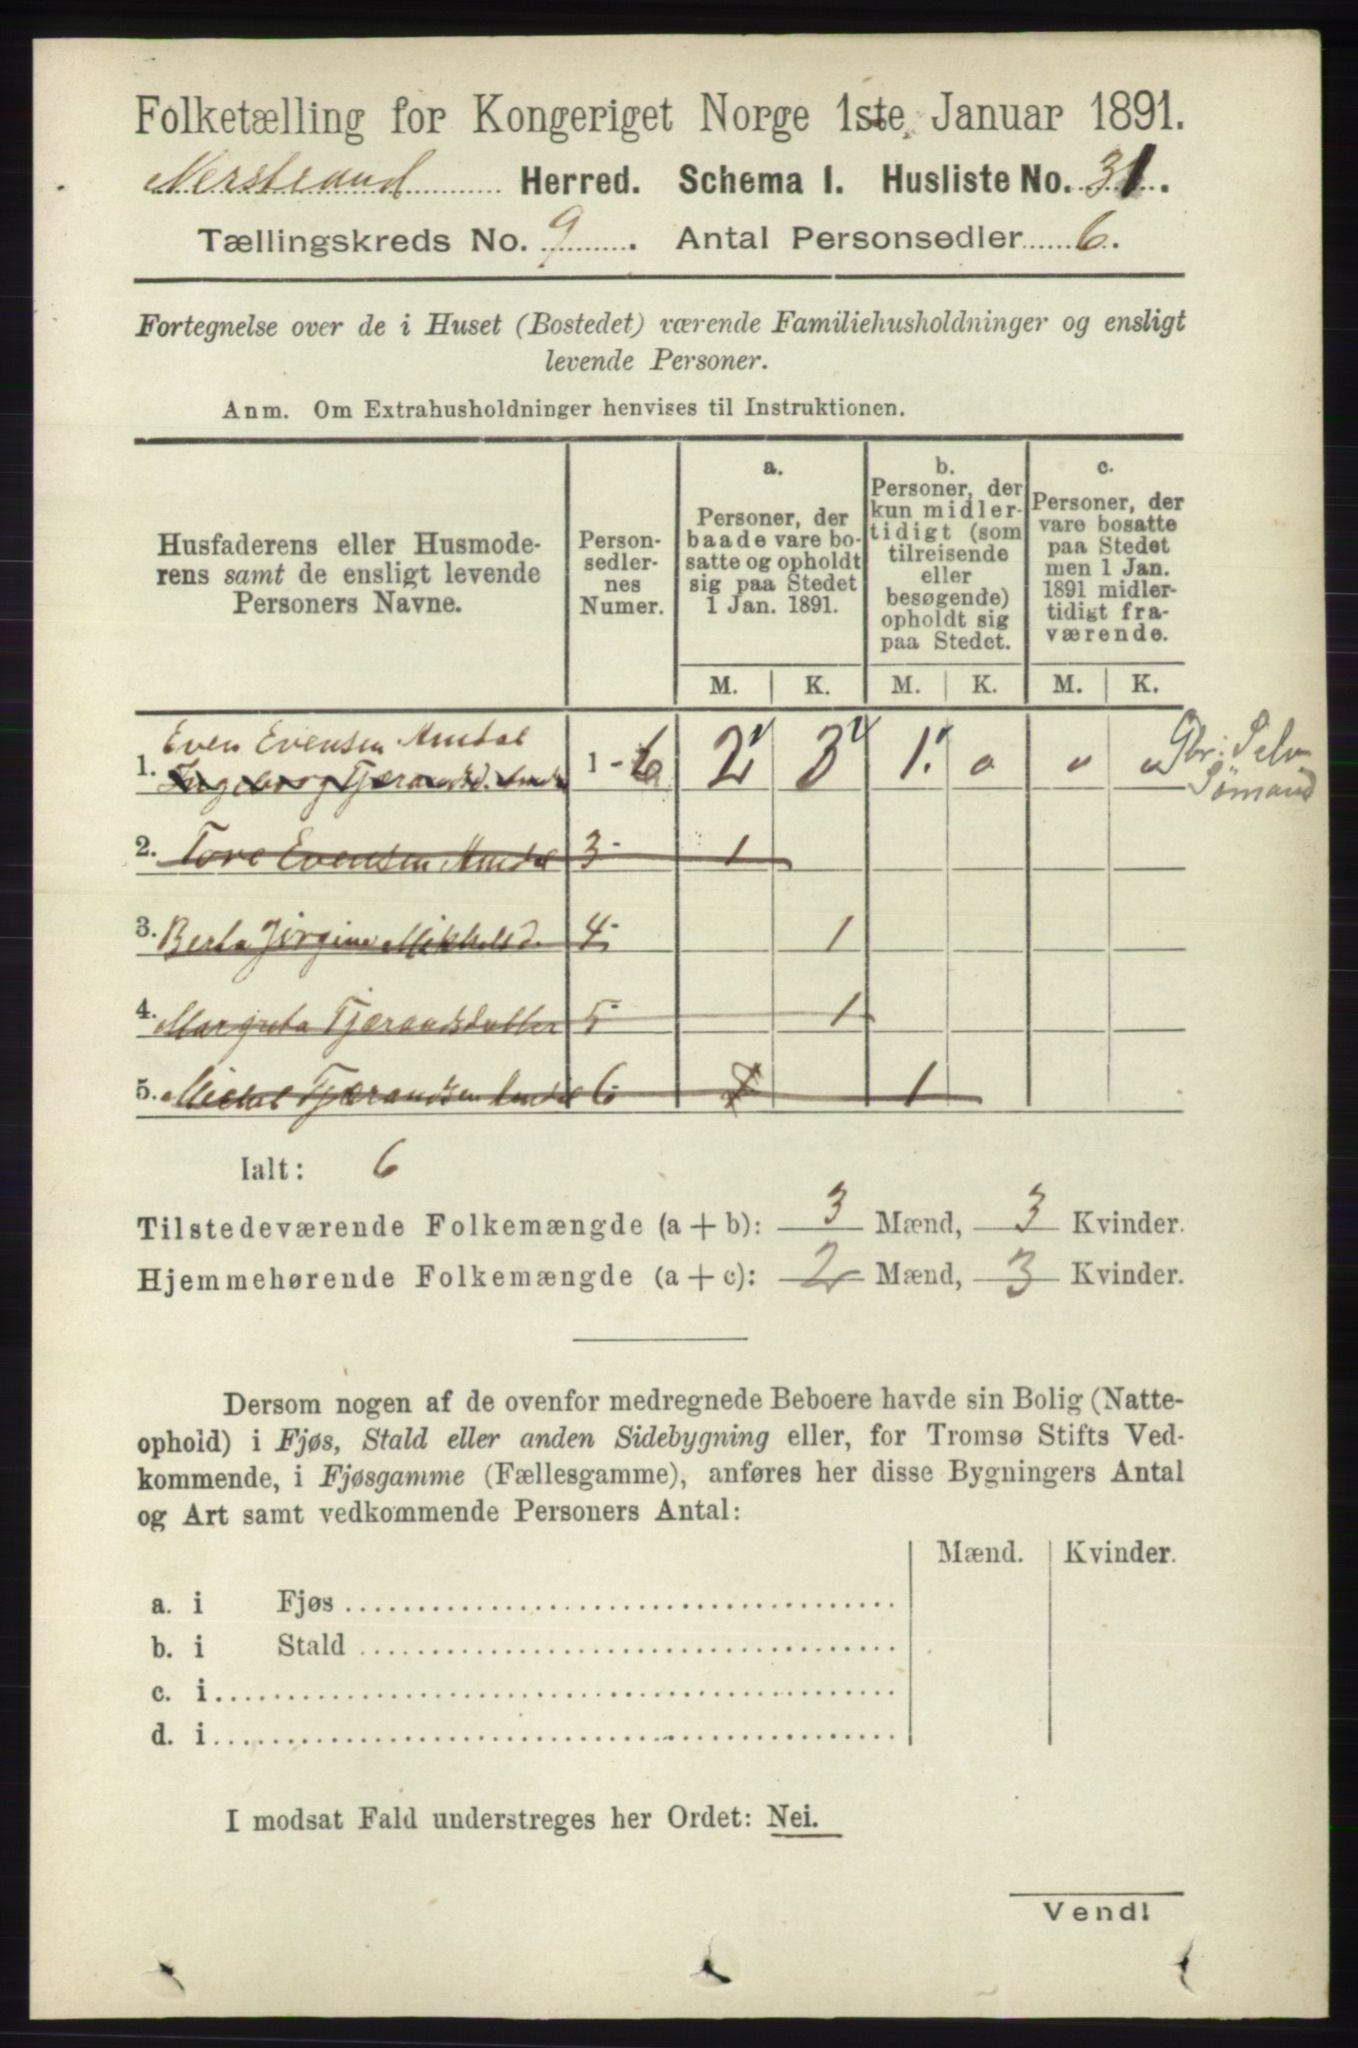 Folketælling for Kongeriget Norge 1ste Januar 1891.
Nerstrand Herred. Schema I. Husliste No. 31.
Tællingskreds No. 9. Antal Personsedler 6.
Fortegnelse over de i Huset (Bostedet) værende Familiehusholdninger og ensligt
levende Personer.
Anm. Om Extrahusholdninger henvises til Instruktionen.
Husfaderens eller Husmode-
rens samt de ensligt levende
Personers Navne.
Person-
sedler-
nes
Numer.
a.
Personer, der
baade vare bo-
satte og opholdt
sig paa Stedet
1 Jan. 1891.
b.
Personer, der
kun midler-
tidigt (som
tilreisende
eller
besøgende)
opholdt sig
paa Stedet.
c.
Personer, der
vare bosatte
paa Stedet
men 1 Jan.
1891 midler-
tidigt fra-
værende.
M. K. M. K. M. K.
Even Evensen Amdal
1. Ingeborg Tjærandsd. 1 - 6 2 3 1. 0 " " Gbr: Selv
Sømand
2. Tore Evensen Amdal 3 - 1
3. Berta Jørgine Mikkelsd. 4 - 1
4. Margreta Tjærandsdatter 5 - 1
5. Michel Tjærandsen Amdal 6 - 1
Ialt: 6
Tilstedeværende Folkemængde (a + b): 3 Mænd, 3 Kvinder.
Hjemmehørende Folkemængde (a + c): 2 Mænd, 3 Kvinder.
Dersom nogen af de ovenfor medregnede Beboere havde sin Bolig (Natte-
ophold) i Fjøs, Stald eller anden Sidebygning eller, for Tromsø Stifts Ved-
kommende, i Fjøsgamme (Fællesgamme), anføres her disse Bygningers Antal
og Art samt vedkommende Personers Antal:
Mænd. Kvinder.
a. i Fjøs
b. i Stald
c. i
d. i
I modsat Fald understreges her Ordet: Nei.
Vend!